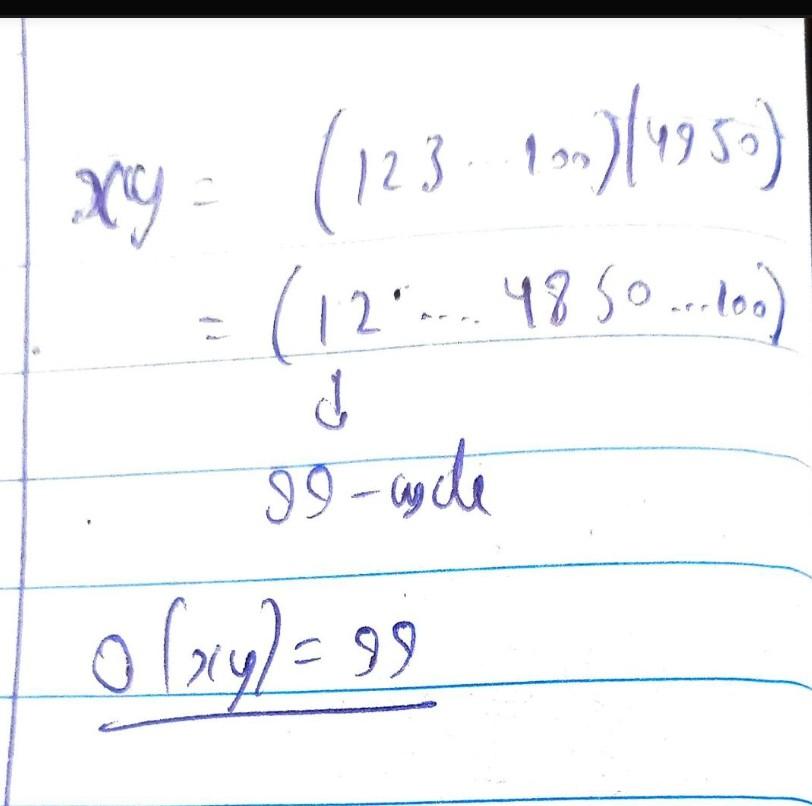 xy = (123...100)(4950)
= (12.... 4850...100)
↓
99-cycle
O(xy) = 99